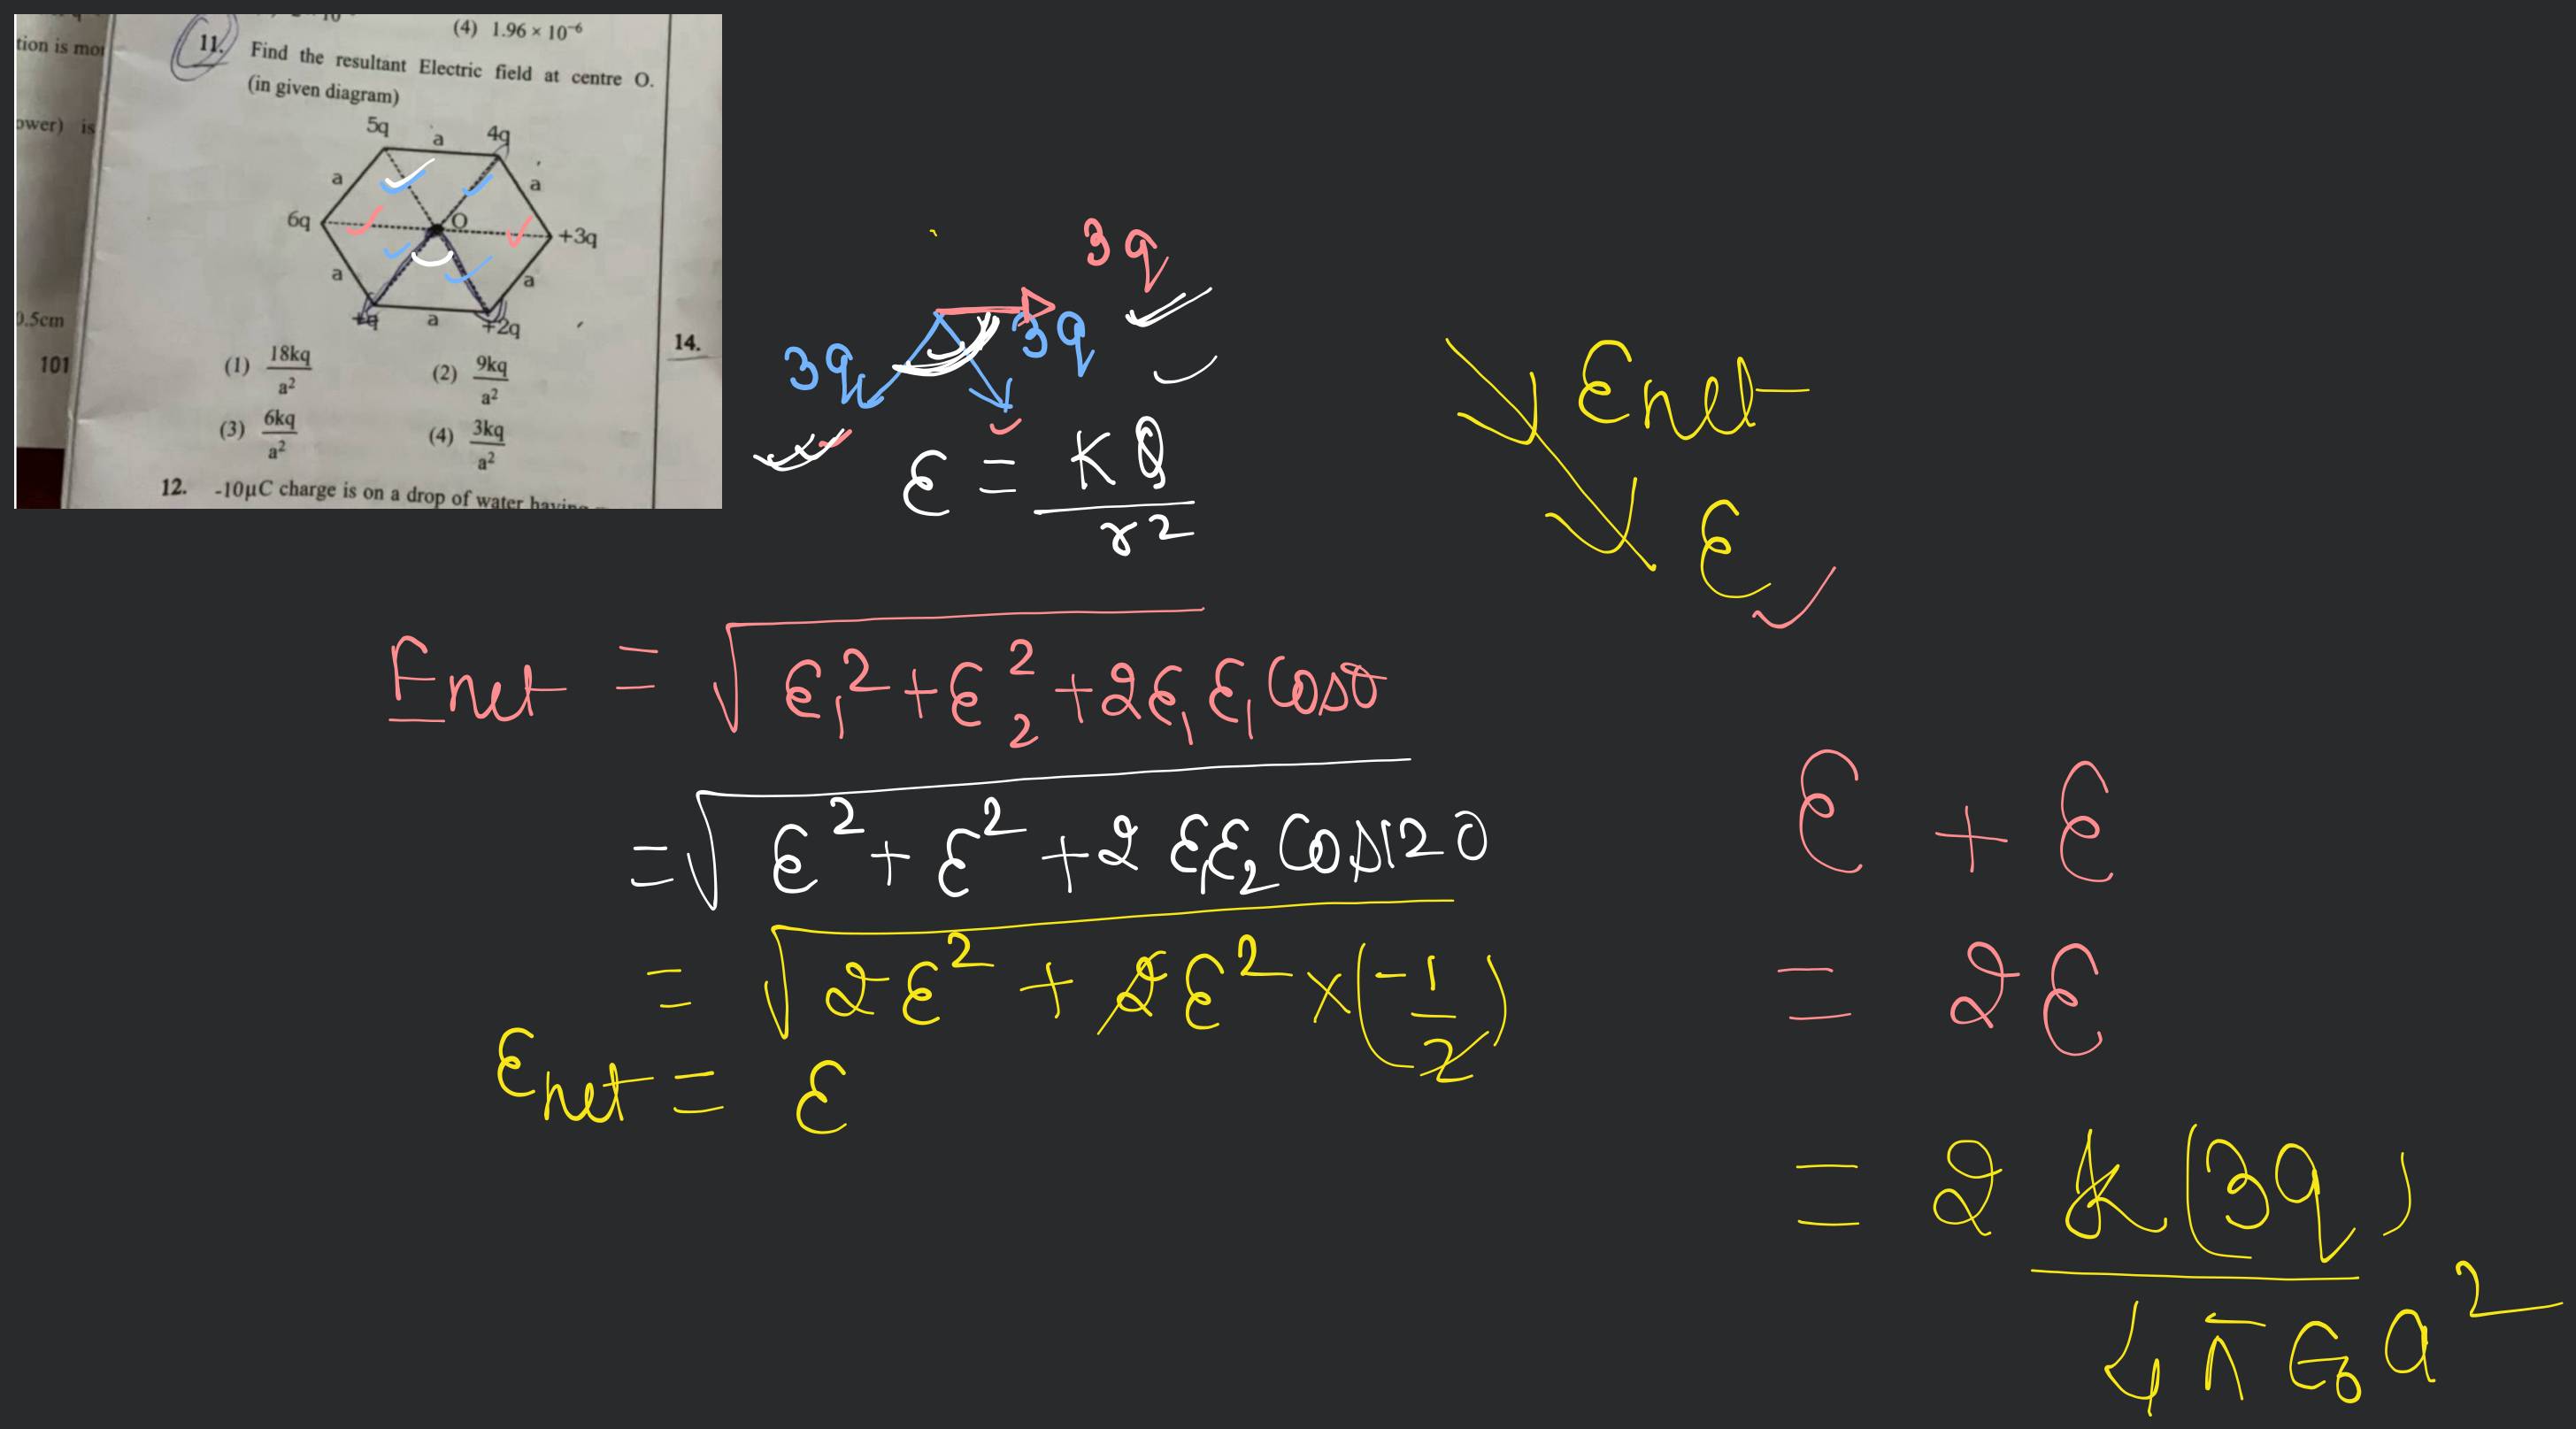 (4) 1.96 × 10⁻⁶
tion is mor
11. Find the resultant Electric field at centre O.
(in given diagram)
ower) is
5q a 4q
a a
6q O +3q
a a
+q a +2q
0.5cm
101
(1) 18kq/a²
(2) 9kq/a²
(3) 6kq/a²
(4) 3kq/a²
14.
12. -10μC charge is on a drop of water having
3q
3q 3q
ε = KQ/r²
Enet
ε
Enet = √ε₁² + ε₂² + 2ε₁ε₁Cosθ
= √ε² + ε² + 2ε₁ε₂Cos120
= √2ε² + 2ε² × (-1/2)
Enet = ε
ε + ε
= 2ε
= 2 k(3q)/4π∈₀a²